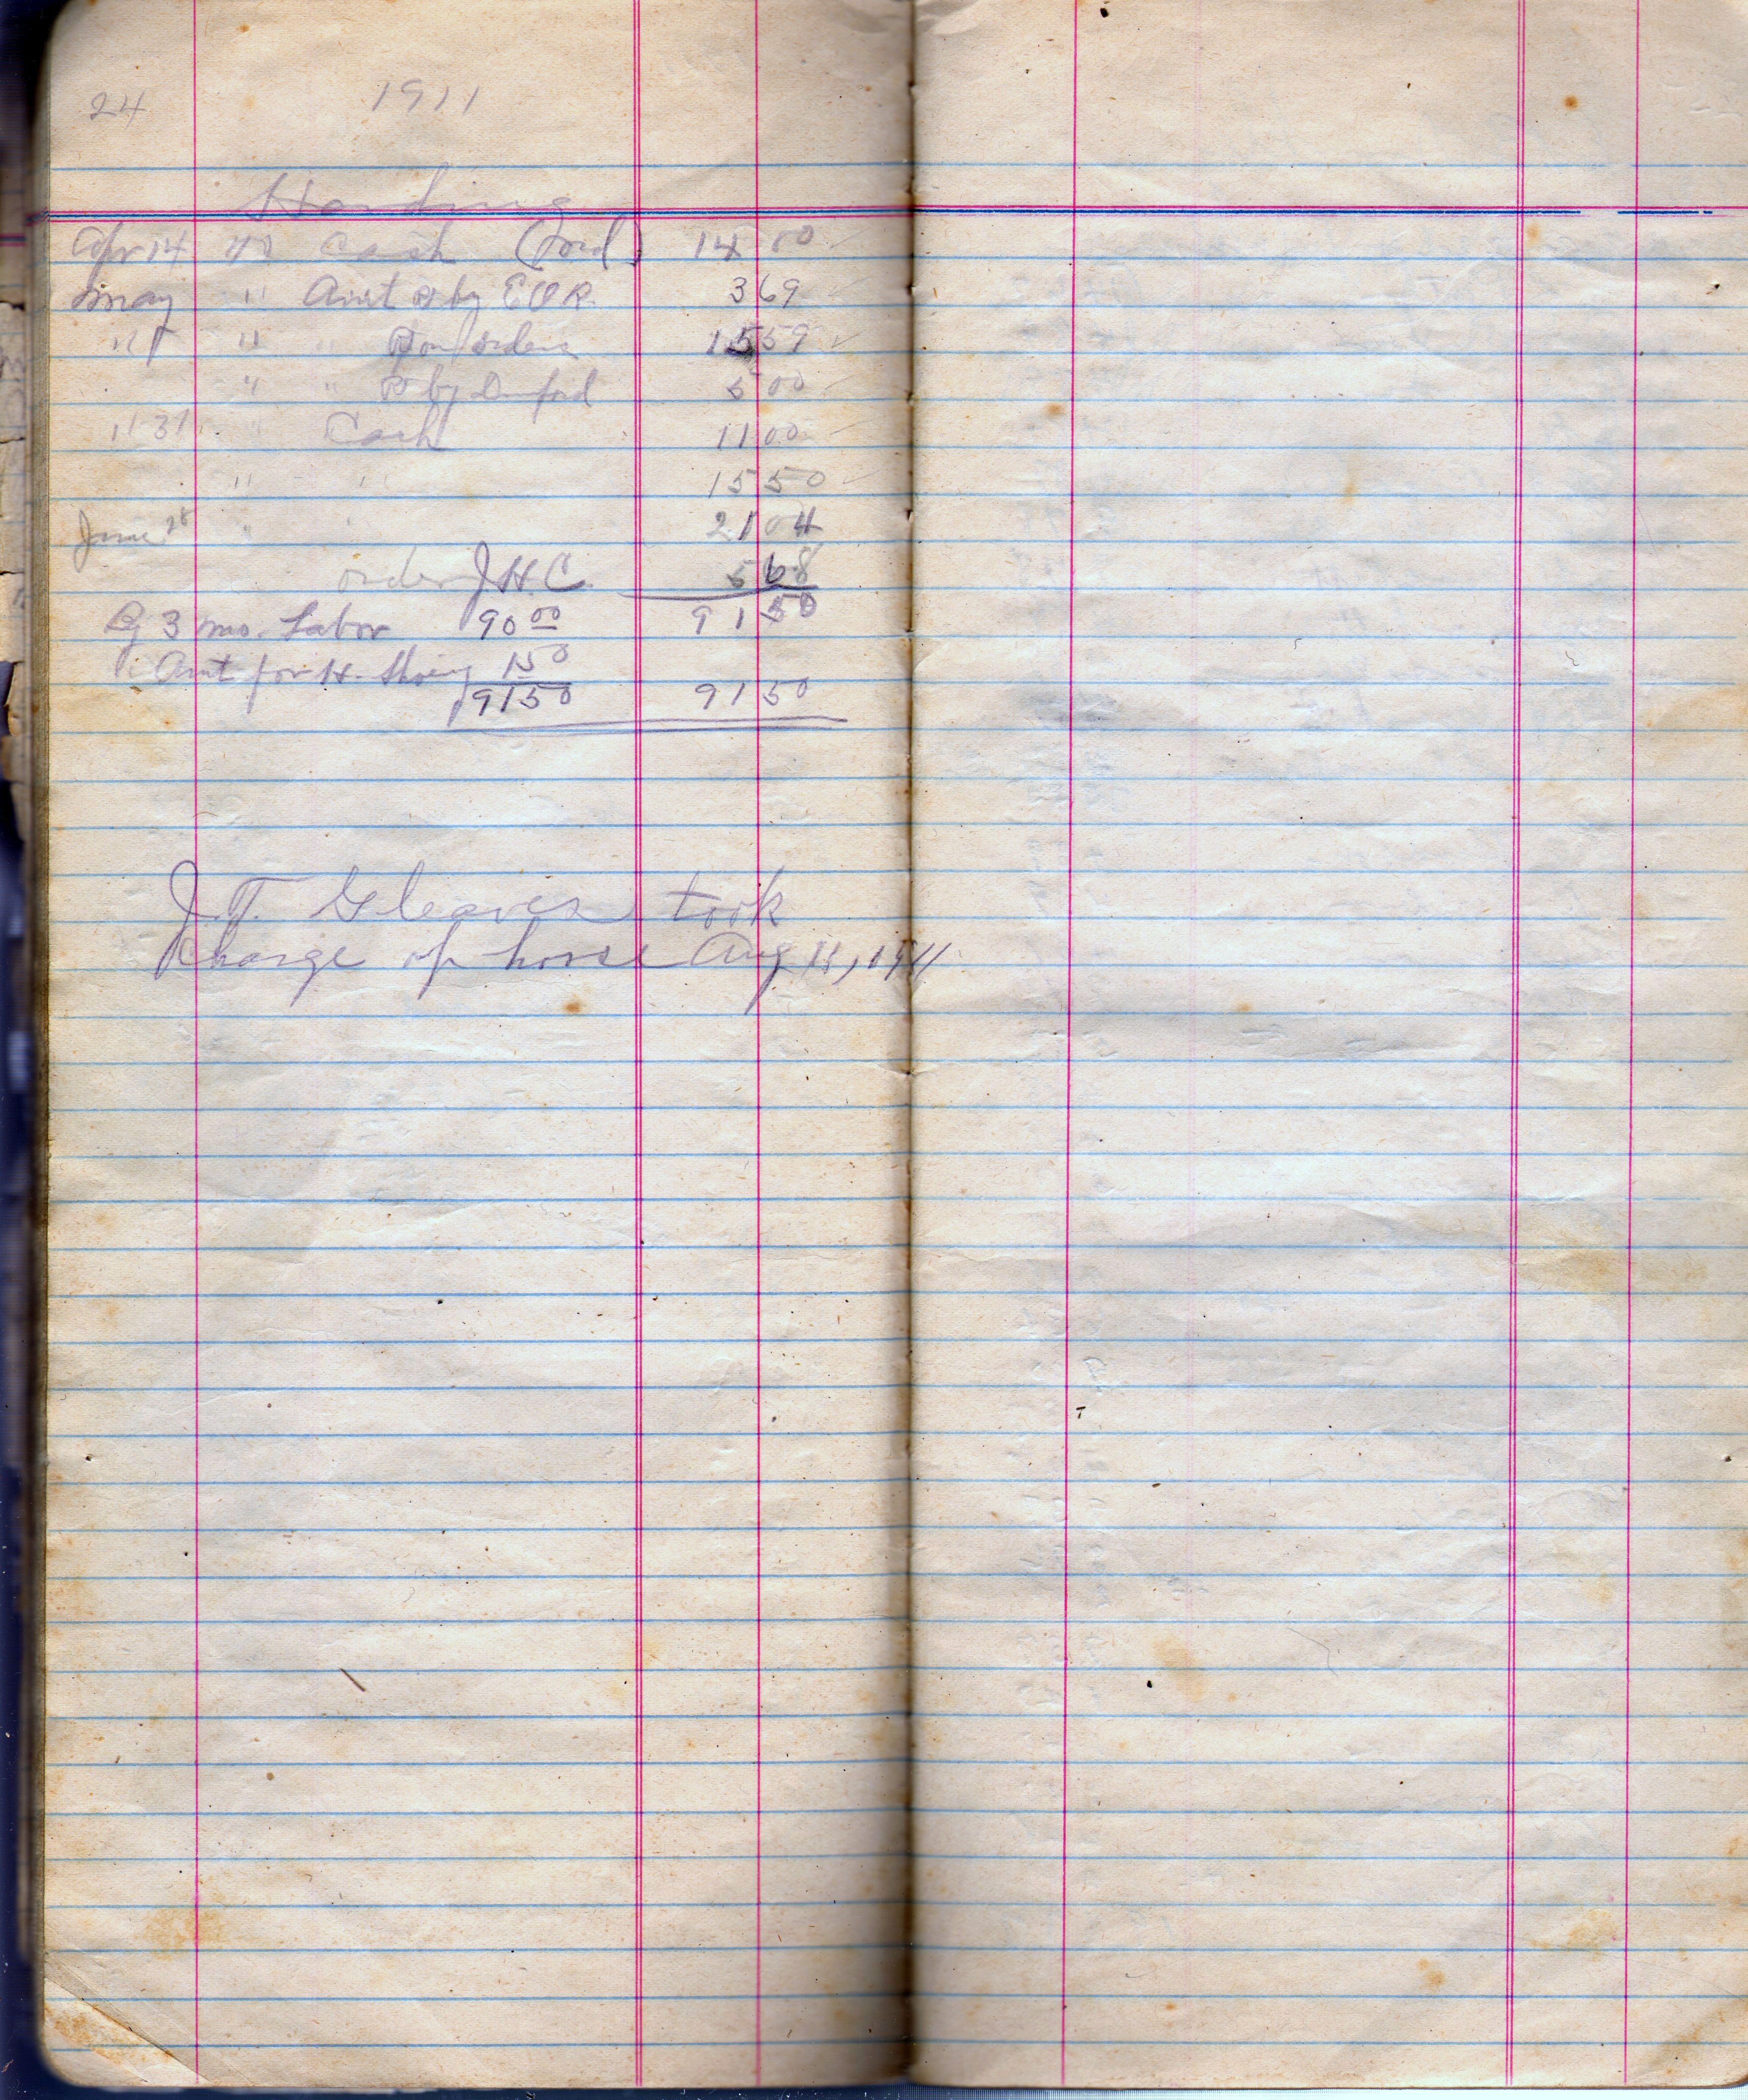 24 1911
Harding
Apr 14 To Cash (Ford) 14 00
May " Amt Pd by E O R. 3 69
" " " Pd on orders 15 59
" " Pd by Dunford 5 00
" 31 " Cash 11 00
" " 15 50
June 28 " " 21 04
order J.H.C. 5 68
By 3 mo. Labor 90 00 91 50
" Amt for H. Shoeing 1 50
91 50 91 50
J.T. Gleaves took
charge of horse Aug 1911